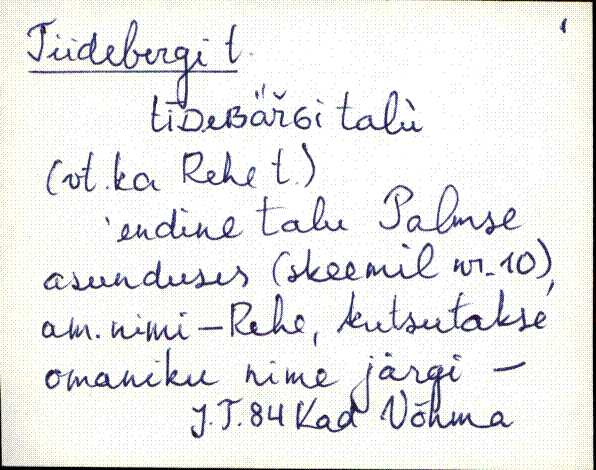 Tiidebergi t.
tīDeBäřGi talù
(vt. ka Rehe t.)
endine talu Palmse
asunduses (skeemil nr. 10),
am. nimi – Rehe, kutsutakse
omaniku nime järgi –
J.T. 84 Kad Võhma